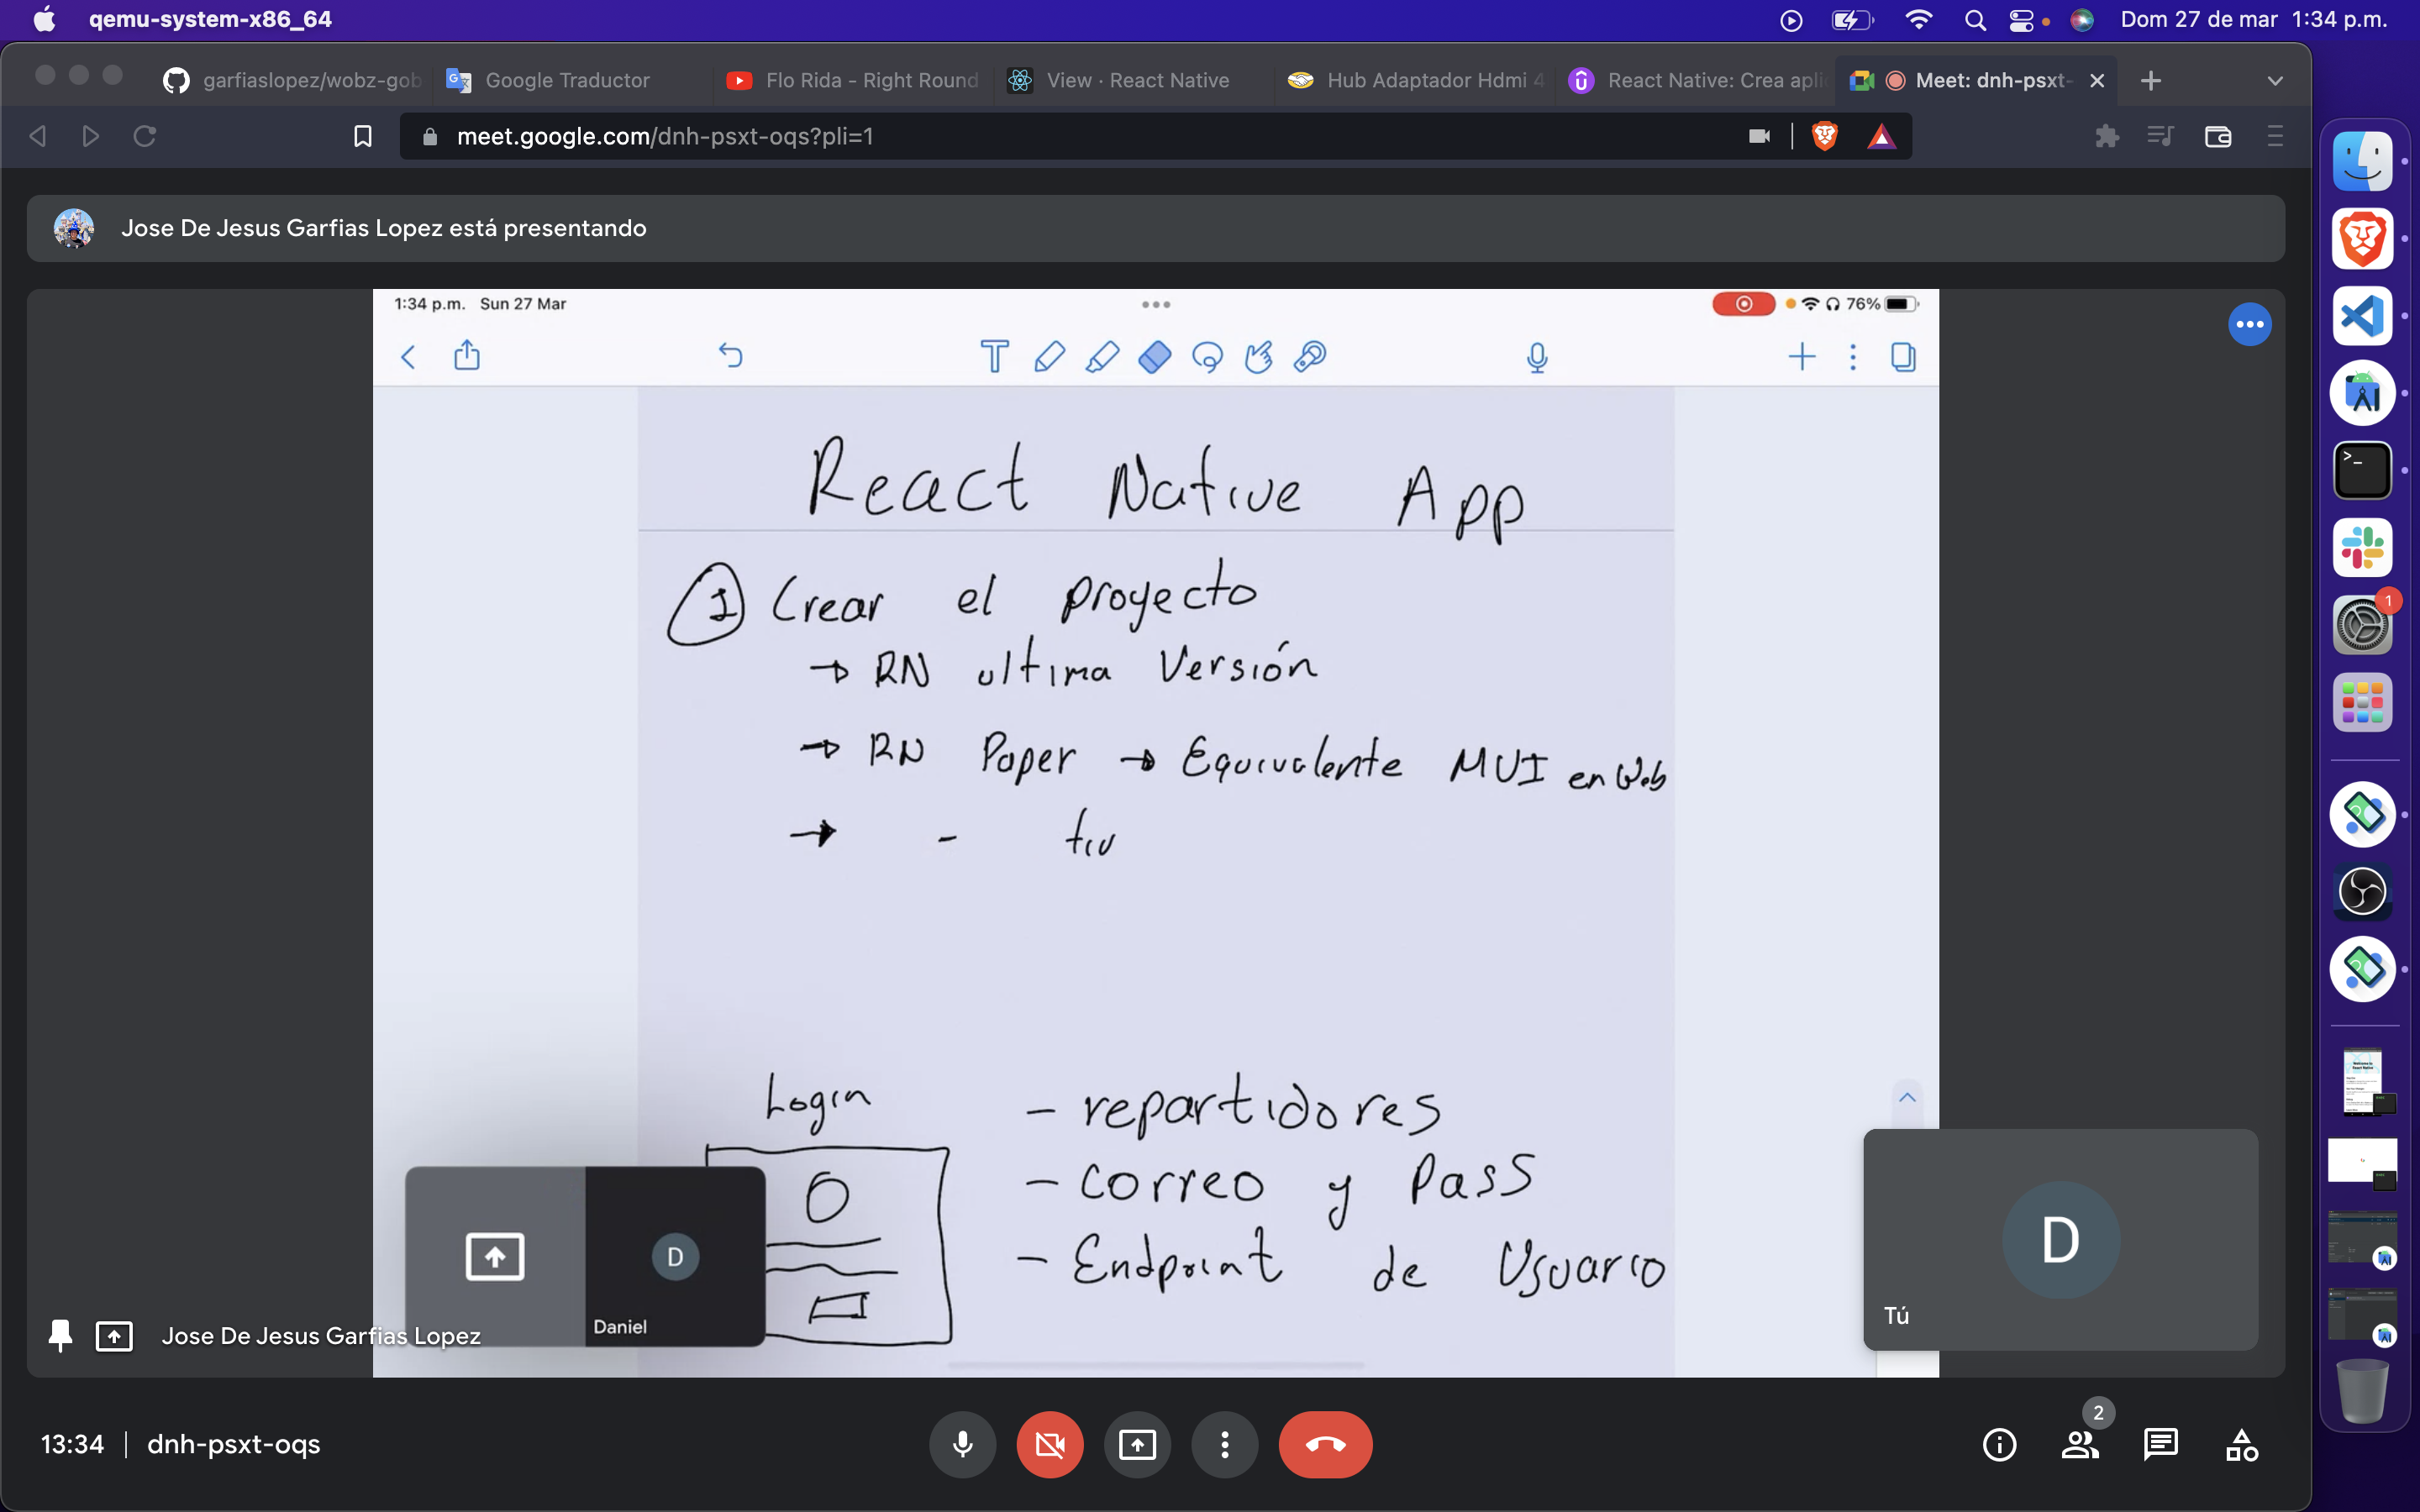 qemu-system-x86_64
Dom 27 de mar 1:34 p.m.
garfiaslopez/wobz-gob
Google Traductor
Flo Rida - Right Round
View · React Native
Hub Adaptador Hdmi 4
React Native: Crea apli
Meet: dnh-psxt-
meet.google.com/dnh-psxt-oqs?pli=1
Jose De Jesus Garfias Lopez está presentando
1:34 p.m. Sun 27 Mar
76%
React Native App
1 Crear el proyecto
→ RN ultima Versión
→ RN Paper → Equivalente MUI en Web
→ -
Login
- repartidores
- correo y Pass
- Endpoint de Usuario
D
Daniel
D
Tú
Jose De Jesus Garfias Lopez
1
13:34 | dnh-psxt-oqs
2